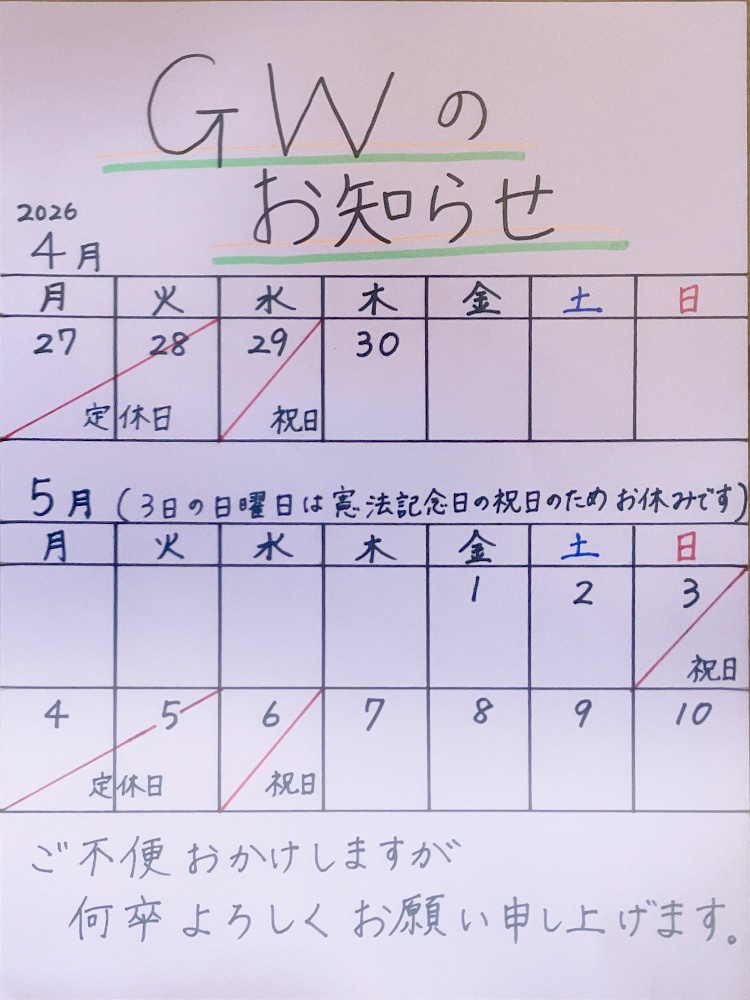 GWの
お知らせ
2026
4月
月 火 水 木 金 土 日
27 28 29 30
定休日 祝日
5月 (3日の日曜日は憲法記念日の祝日のためお休みです)
月 火 水 木 金 土 日
1 2 3
祝日
4 5 6 7 8 9 10
定休日 祝日
ご不便おかけしますが
何卒よろしくお願い申し上げます。